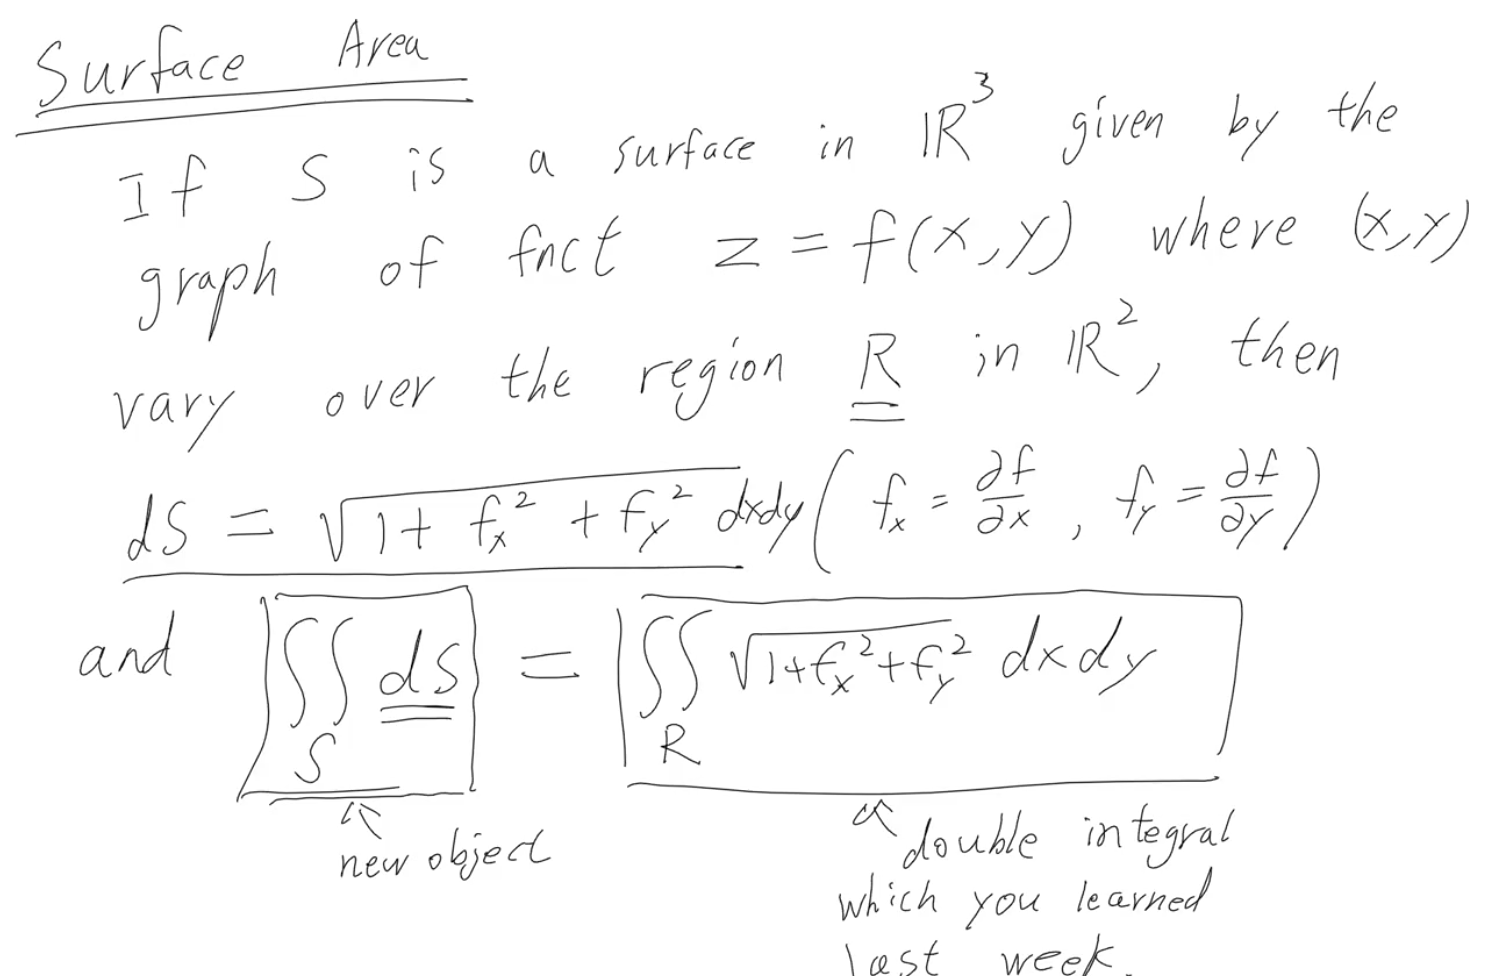 Surface Area
If S is a surface in ℝ³ given by the
graph of fnct z = f(x,y) where (x,y)
vary over the region R in ℝ², then
dS = √(1 + f_x² + f_y²) dxdy ( f_x = ∂f/∂x , f_y = ∂f/∂y )
and ∬_S dS = ∬_R √(1+f_x²+f_y²) dxdy
new object
double integral
which you learned
last week.